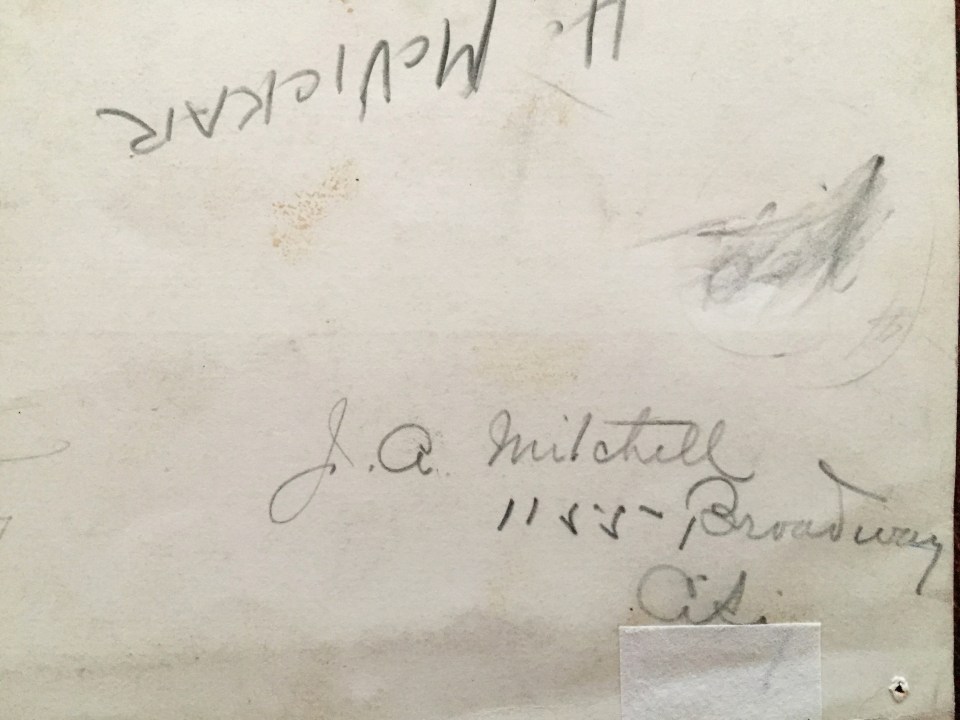 H. McVICKAR
J. A. Mitchell
1155 - Broadway